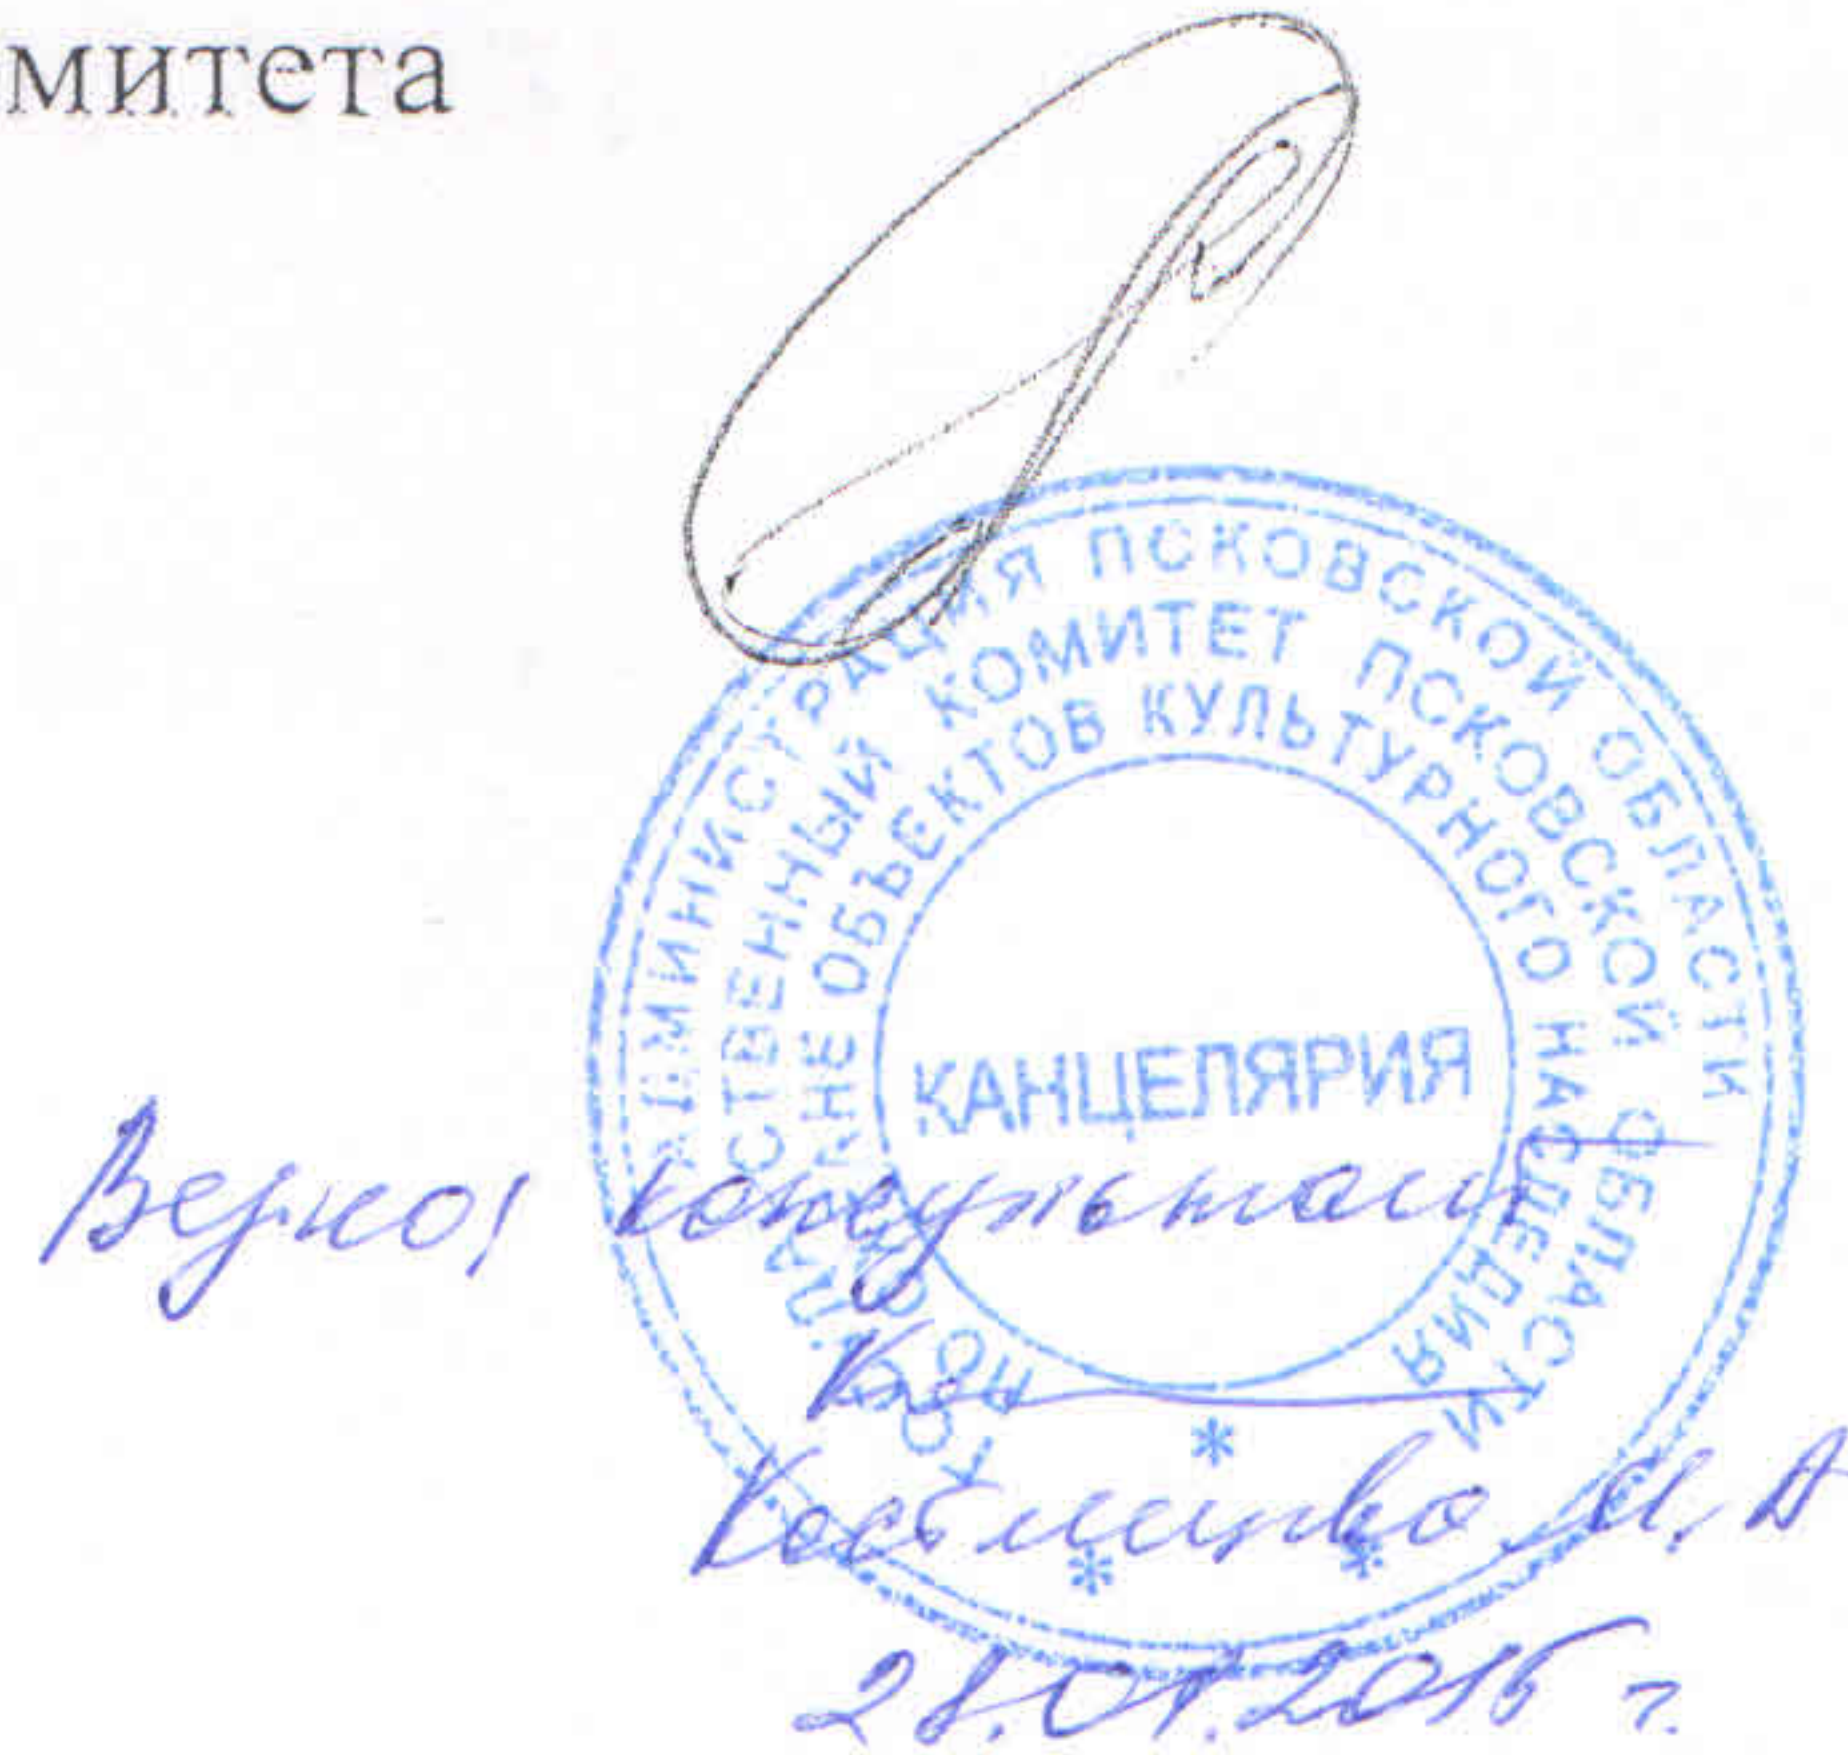 митета
АДМИНИСТРАЦИЯ ПСКОВСКОЙ ОБЛАСТИ
ГОСУДАРСТВЕННЫЙ КОМИТЕТ ПСКОВСКОЙ ОБЛАСТИ
ПО ОХРАНЕ ОБЪЕКТОВ КУЛЬТУРНОГО НАСЛЕДИЯ
КАНЦЕЛЯРИЯ
Верно: консультант